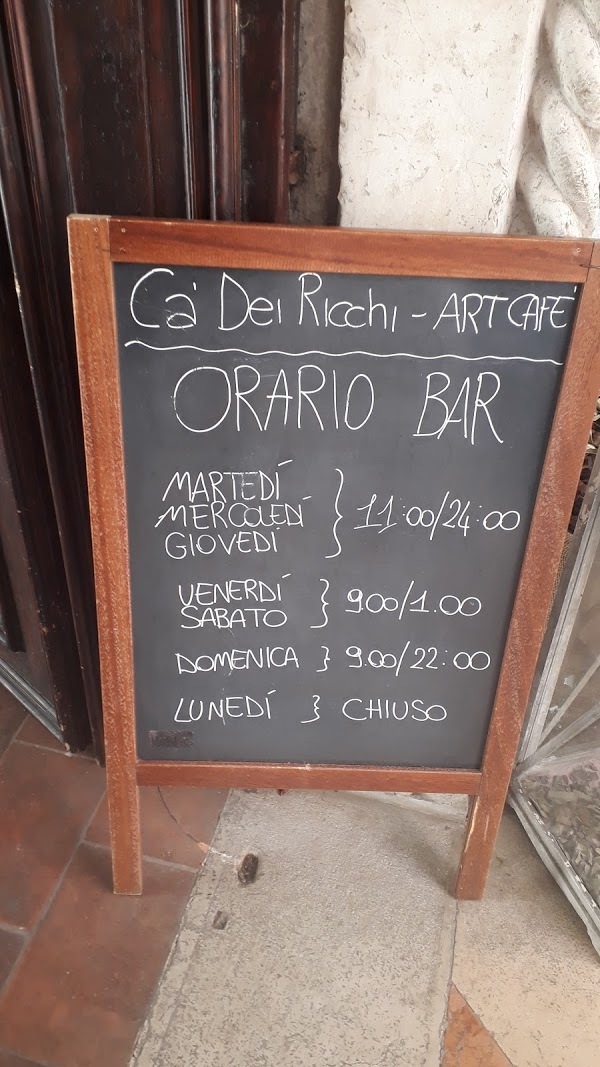 Ca' Dei Ricchi - ART CAFE'
ORARIO BAR
MARTEDÍ
MERCOLEDÍ } 11:00/24:00
GIOVEDÍ
VENERDÍ
SABATO } 9.00/1.00
DOMENICA } 9.00/22:00
LUNEDÍ } CHIUSO